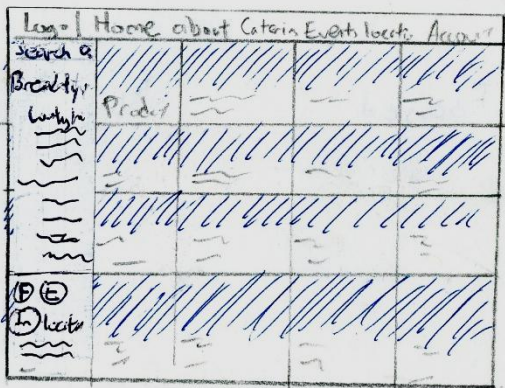 Logo | Home about Caterin Events locatio Account
Search
Bread typ
Product
F E
In locatio